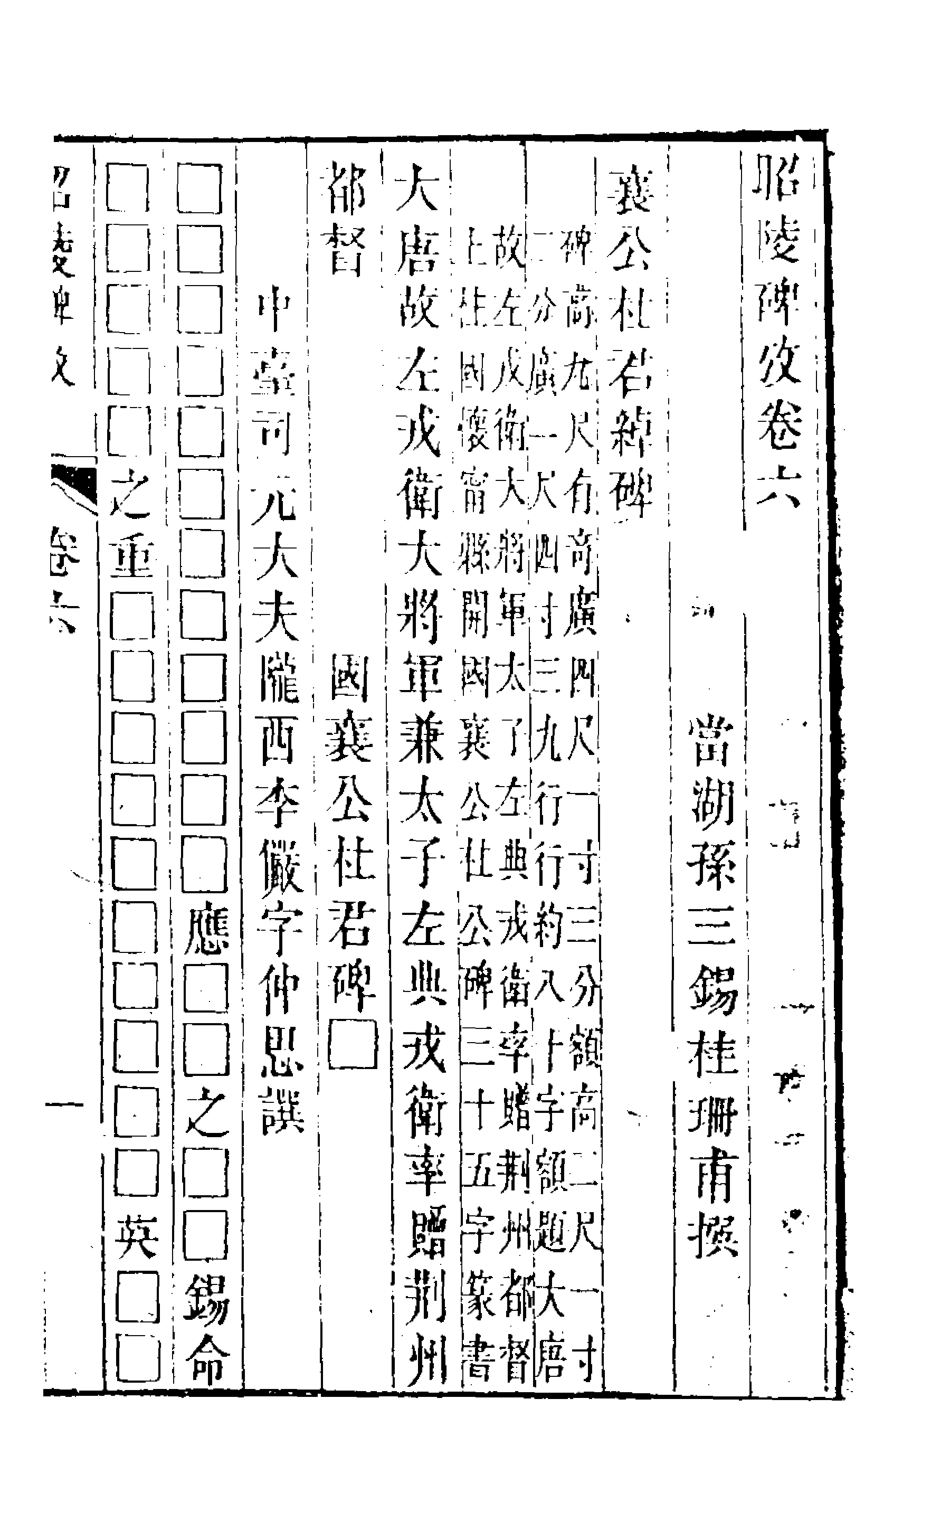 昭陵碑攷卷六
當湖孫三錫桂珊甫撰
襄公杜君綽碑
碑高九尺有奇廣四尺一寸三分額高二尺一寸
二分廣一尺四寸三九行行約八十字額題大唐
故左戎衛大將軍太子左典戎衛率贈荆州都督
上柱國懷甯縣開國襄公杜公碑三十五字篆書
大唐故左戎衛大將軍兼太子左典戎衛率贈荆州
都督　　　　　　國襄公杜君碑□
中臺司元大夫隴西李儼字仲思譔
□□□□□□□□□□□□應□□之□□錫命
□□□□□之重□□□□□□□□□□英□□
昭陵碑攷　卷六　一